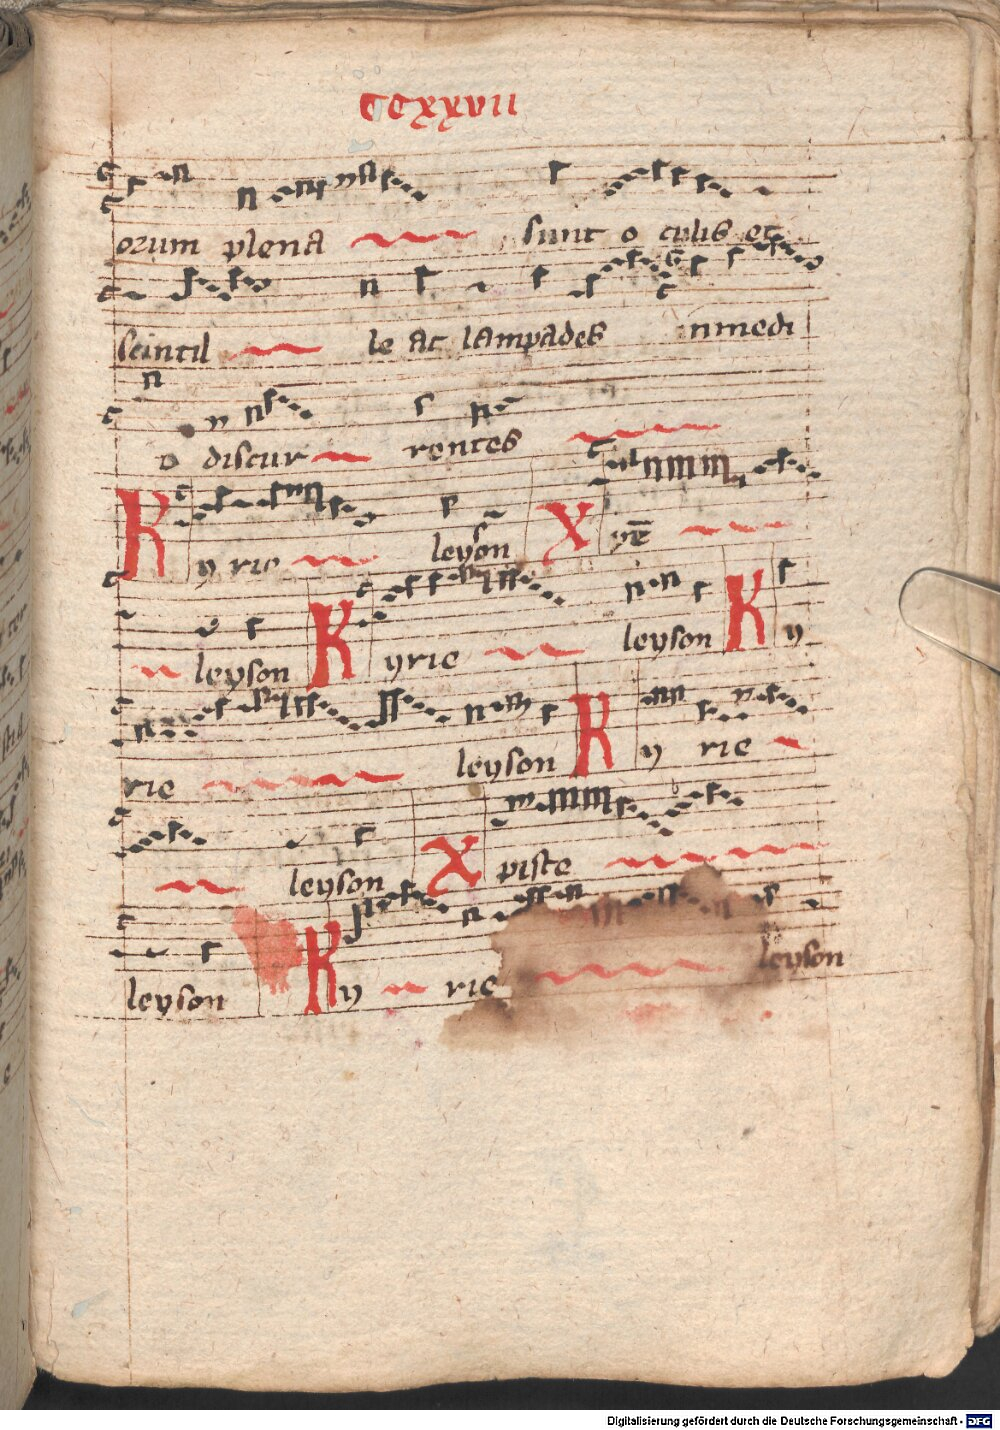 CCXXVII
orum plena sunt oculis et
scintil le ac lampades inmedi
o discur rentes
Kyrie leyson Xpē
leyson Kyrie leyson Ky
rie leyson Ky rie
leyson Xpiste
leyson Ky rie leyson
Digitalisierung gefördert durch die Deutsche Forschungsgemeinschaft - DFG